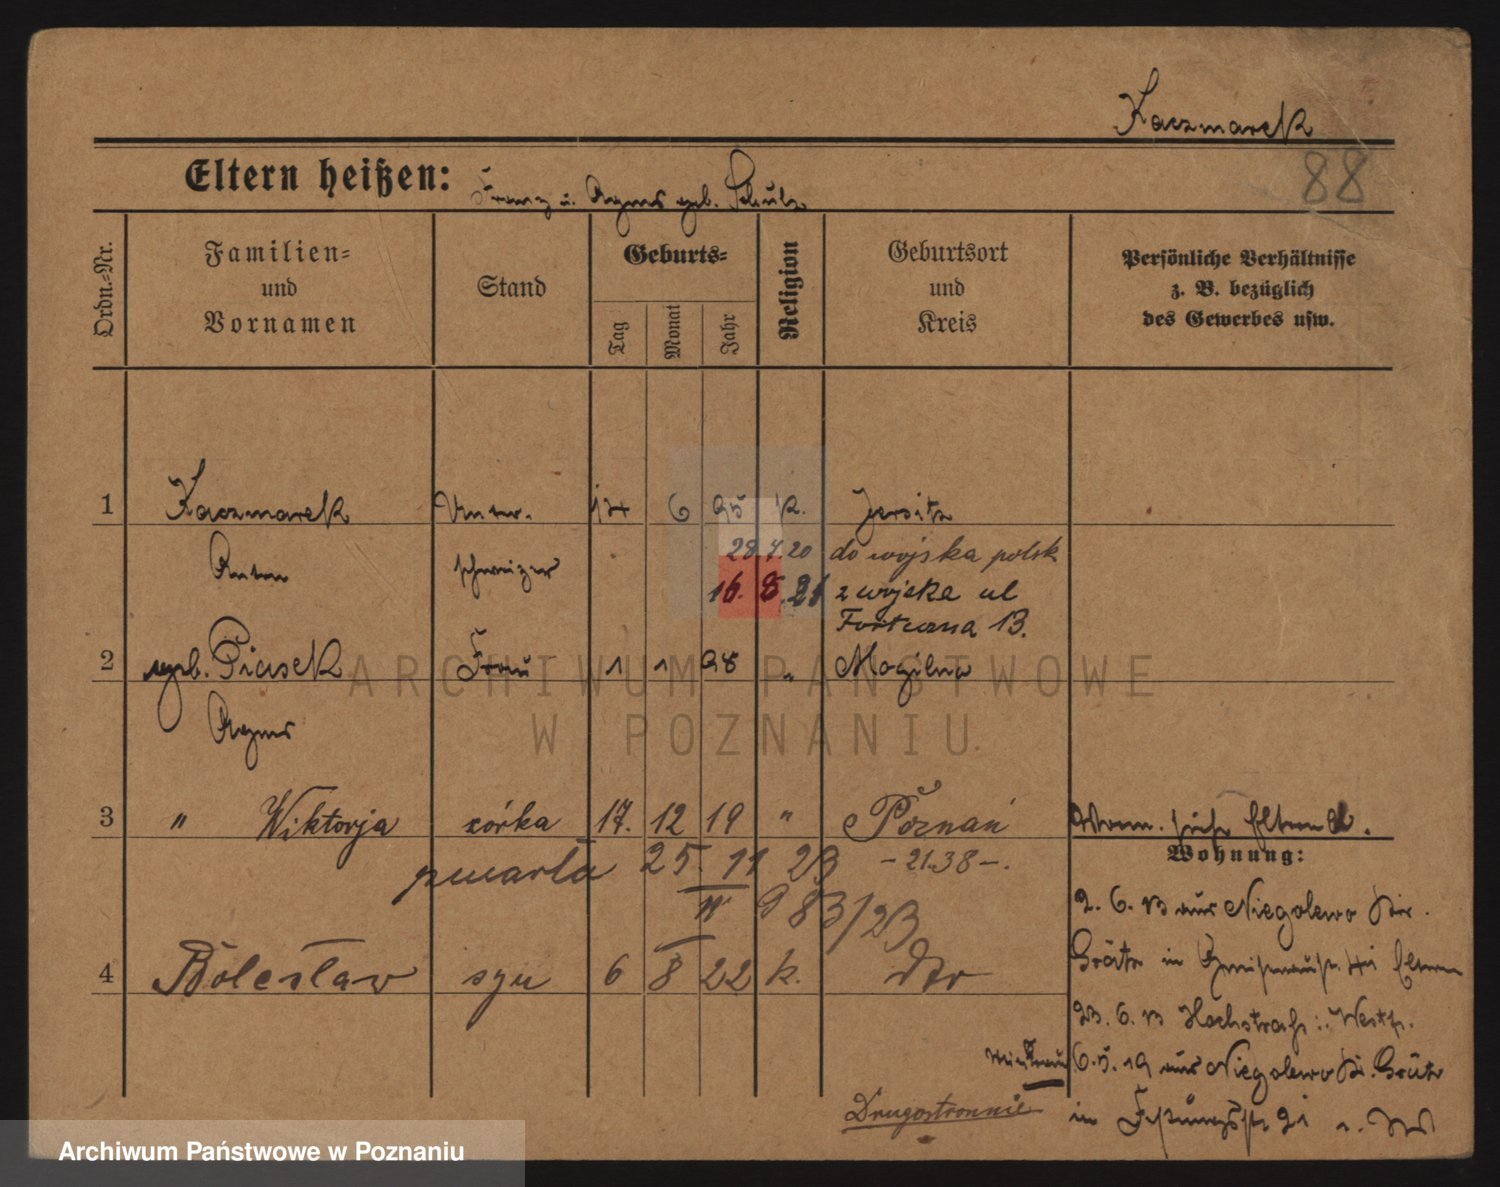 Kaczmarek
88
Eltern heißen: Franz u. Agnes geb. Schulz
Ordn.=Nr.
Familien=
und
Vornamen
Stand
Geburts=
Tag
Monat
Jahr
Religion
Geburtsort
und
Kreis
Persönliche Verhältnisse
z. B. bezüglich
des Gewerbes usw.
1 Kaczmarek Unter- 14 6 95 k. Jersitz
Anton schweizer 28.7.20 do wojska polsk
16. 8. 21 z wojska ul
Forteczna 13.
2 geb. Piasek Frau 1 1 98 " Mogilno
Agnes
3 " Wiktorja córka 17. 12 19 " Poznań
umarła 25. 11 23 - 21.38 -.
II 983/23
4 Bolesław syn 6 8 22 k. dto
Eltern
Wohnung:
2. 6. 13 aus Niegolewo Kr.
Grätz in Eltern
23. 6. 13 Westf.
6. 5. 19 aus Niegolewo Kr. Grätz
in 21
Drugostronnie
ARCHIWUM PAŃSTWOWE
W POZNANIU
Archiwum Państwowe w Poznaniu